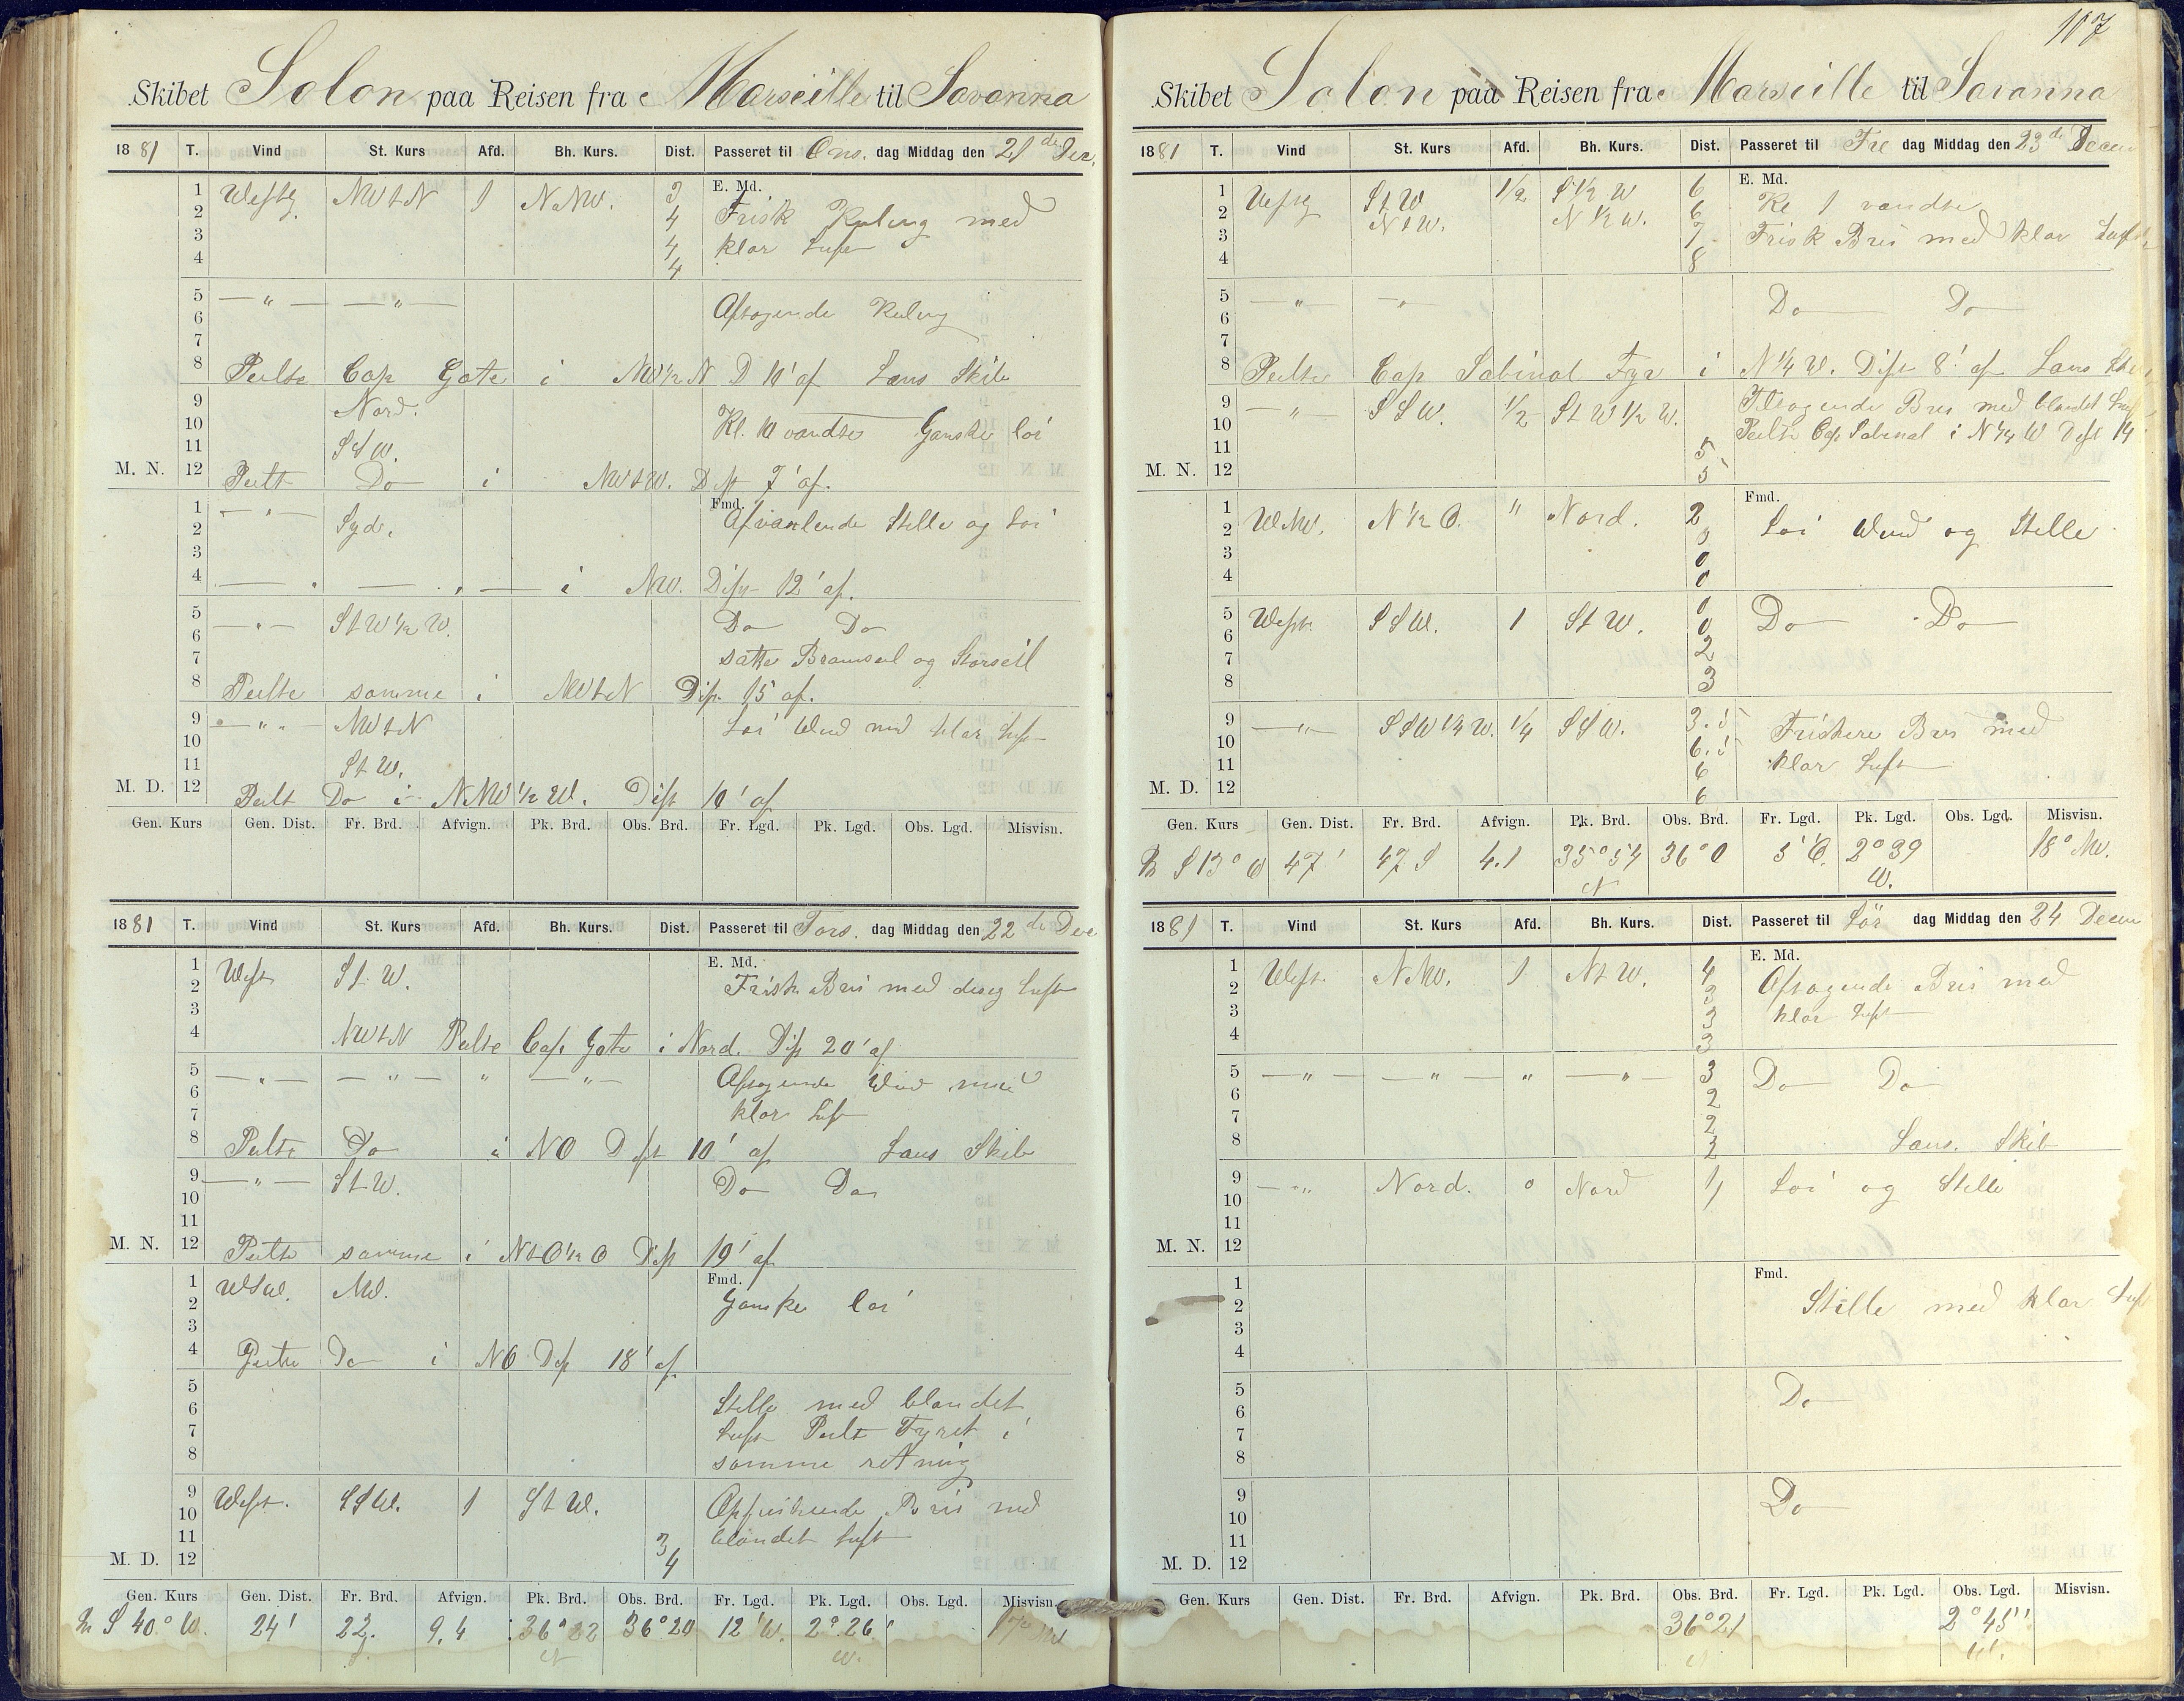 Skibet Solon paa Reisen fra Marseille til Savanna
1881 T. Vind St. Kurs Afd. Bh. Kurs. Dist. Passeret til Ons. dag Middag den 21de Dec.
E. Md.
1 Vestlg NWtN 1 NNW. 3 Frisk Kuling med
2 4
3 4 klar Luft
4 4
5 — " — — " — Aftagende Kuling
6
7
8 Peilte Cap Gate i NW½N D 10' af Læns Skib
9 Nord.
10 Kl. 10 vandte Ganske loi
11 StW.
M. N. 12 Peilt Do i NWtW. Dist 7' af.
Fmd.
1 — " — Afvæxlende Stille og Loi
2 Syd.
3
4 i NW. Dist 12' af.
5 — " — StW½W. Do Do
6
7 satte Bramseil og Storseil
8 Peilte samme i NWtN Dist. 15 af.
9 — " — NWtN Loi Wind med klar Luft
10
11 StW.
M. D. 12 Peilt Do i NNW½W. Dist 10' af
Gen. Kurs Gen. Dist. Fr. Brd. Afvign. Pk. Brd. Obs. Brd. Fr. Lgd. Pk. Lgd. Obs. Lgd. Misvisn.
1881 T. Vind St. Kurs Afd. Bh. Kurs. Dist. Passeret til Tors. dag Middag den 22de Dec
E. Md.
1 West StW.
2 Frisk Bris med diseg Luft
3
4 NWtN Peilte Cap Gate i Nord. Dist 20' af
5 — " — — " — " — " — Aftagende Wind med
6
7 klar Luft
8 Peilte Do i NO Dist 10' af Læns Skib
9 — " — StW. Do Do
10
11
M. N. 12 Peilte samme i NtO½O Dist 19' af
Fmd.
1 WSW. NW.
2 Ganske loi
3
4 Peilte Do i NO Dist 18' af
5 Stille med blandet
6
7 Luft Peilt Fyret i
8 samme retning
9 West. SSW. 1 StW. Opfriskende Bris med
10
11 3 blandet Luft
M. D. 12 4
Gen. Kurs Gen. Dist. Fr. Brd. Afvign. Pk. Brd. Obs. Brd. Fr. Lgd. Pk. Lgd. Obs. Lgd. Misvisn.
S 40° W. 24' 22. 9,4 36°22 36°20 12'W. 2°26'
N W.
107
Skibet Solon paa Reisen fra Marseille til Savanna
1881 T. Vind St. Kurs Afd. Bh. Kurs. Dist. Passeret til Fre dag Middag den 23de Decem
E. Md.
1 Vestlg StW ½ S½W 6 Kl 1 vandte
2 NtW. N½W. 6
3 7 Frisk Bris med klar Luft
4 8
5 — " — — " — Do Do
6
7
8 Peilte Cap Sabinal Fyr i N¼W. Dist 8' af Læns Skib
9 — " — SSW. ½ StW½W. Tiltagende Bris med blandet Luft
10 Peilte Cap Sabinal i N¼W Dist 14
11 5
M. N. 12 5
Fmd.
1 WNW. N½O. " Nord. 2 Loi Wind og Stille
2 0
3 0
4 0
5 West. SSW. 1 StW. 0 Do Do
6 0
7 2
8 3
9 — " — SSW¼W. ¼ SSW. 3.5 Friskere Bris med
10 6.5
11 6 klar Luft
M. D. 12 6
Gen. Kurs Gen. Dist. Fr. Brd. Afvign. Pk. Brd. Obs. Brd. Fr. Lgd. Pk. Lgd. Obs. Lgd. Misvisn.
S 13° O 47' 47 S 4.1 35°54 36°0 5'O. 2°39 18° NW.
N W.
1881 T. Vind St. Kurs Afd. Bh. Kurs. Dist. Passeret til Lör dag Middag den 24 Decem
E. Md.
1 West. NNW. 1 NtW. 4 Aftagende Bris med
2 3
3 3 klar Luft
4 3
5 — " — — " — " — " — 3 Do Do
6 2
7 2
8 2 Læns. Skib
9 — " — Nord. 0 Nord 1 Loi og Stille
10 1
11
M. N. 12
Fmd.
1
2 Stille med klar Luft
3
4
5 Do
6
7
8
9 Do
10
11
M. D. 12
Gen. Kurs Gen. Dist. Fr. Brd. Afvign. Pk. Brd. Obs. Brd. Fr. Lgd. Pk. Lgd. Obs. Lgd. Misvisn.
36°21 2°45''
N W.